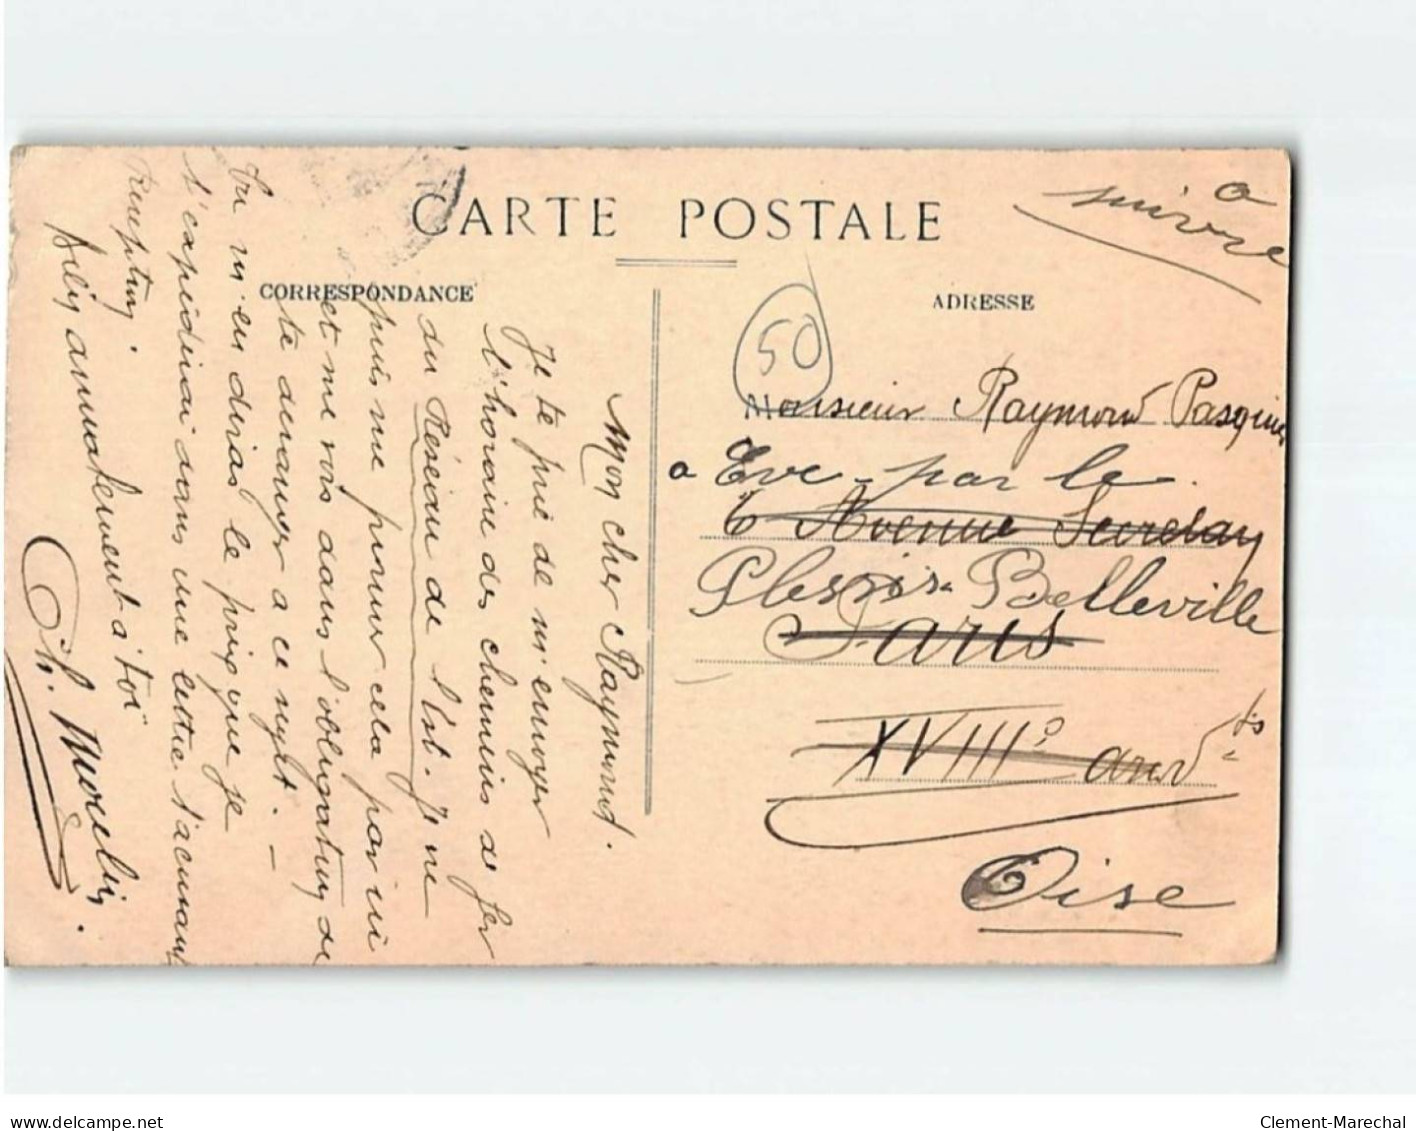 CARTE POSTALE
CORRESPONDANCE
ADRESSE
a
suivre
50
Mon cher Raymond.
Je te prie de m'envoyer
l'horaire des chemins de fer
du Réseau de l'Est. Je ne
puis me procurer cela par ici
et me vois dans l'obligation de
te déranger à ce sujet. -
Tu m'en diras le prix que je
t'expédierai dans une lettre t'accusant
Réception.
Bien amicalement à toi
Monsieur Raymond Pasquier
a Eve - par le
6 Avenue Secretan
Plessis-Belleville
Paris
XVIIIe arrdt
Oise
Clement-Marechal